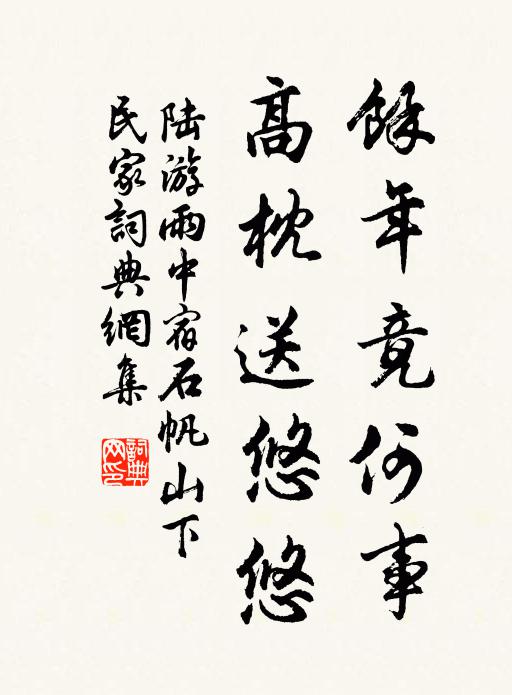 餘年竟何事
高枕送悠悠
陆游雨中宿石帆山下
民家詞典網集
詞典网印